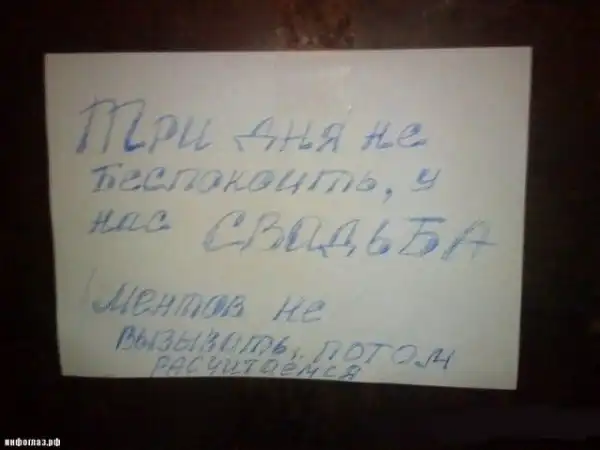 Три дня не
Беспокоить, у
нас СВАДЬБА
Ментов не
вызывать, потом
расчитаемся
инфоглаз.рф